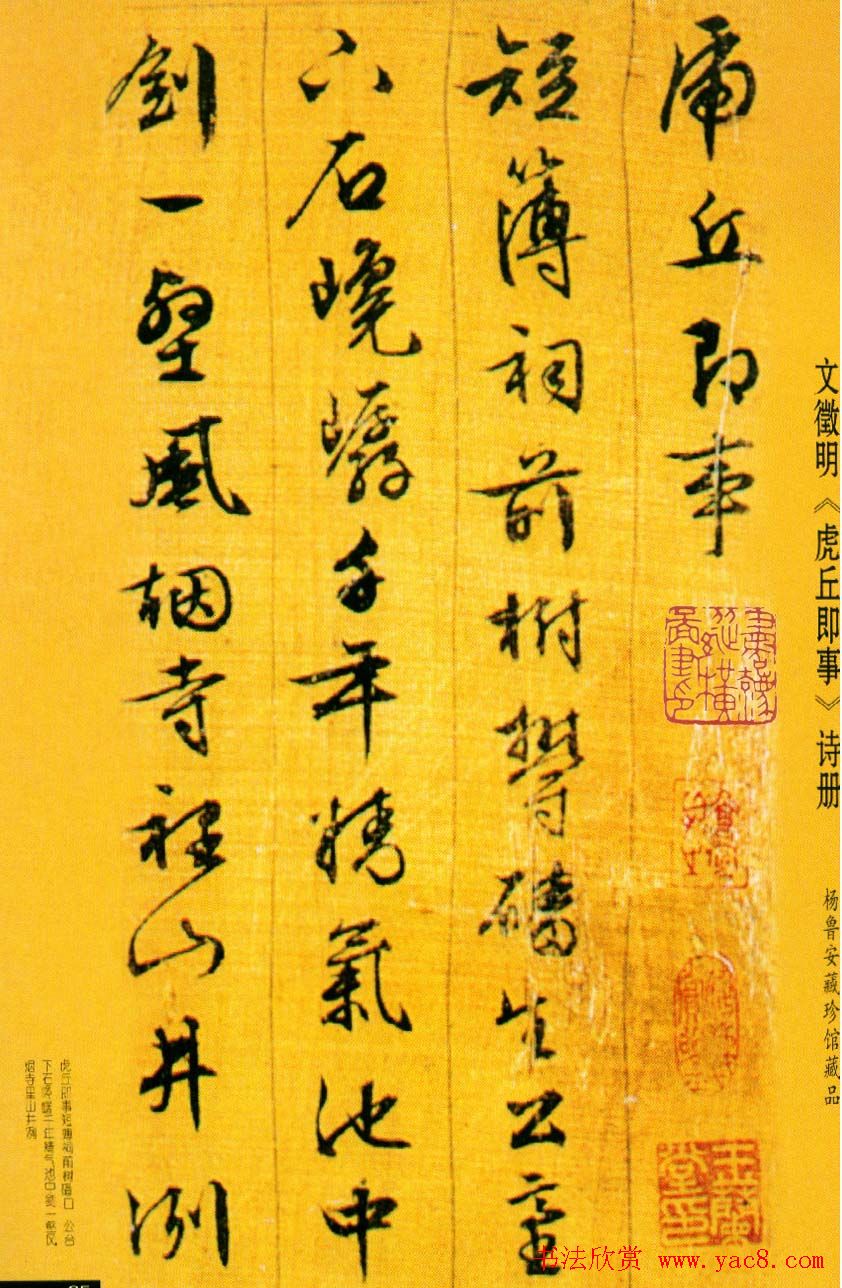 文徵明《虎丘即事》诗册
杨鲁安藏珍馆藏品
虎丘即事
短簿祠前樹鬱磻生公臺
下石千年精氣池中
劍一壑風烟寺裡山井冽
玉蘭堂印
虎丘即事短簿祠前树 公台
下石 千年精气池中剑一壑风
烟寺里山井冽
书法欣赏 www.yac8.com